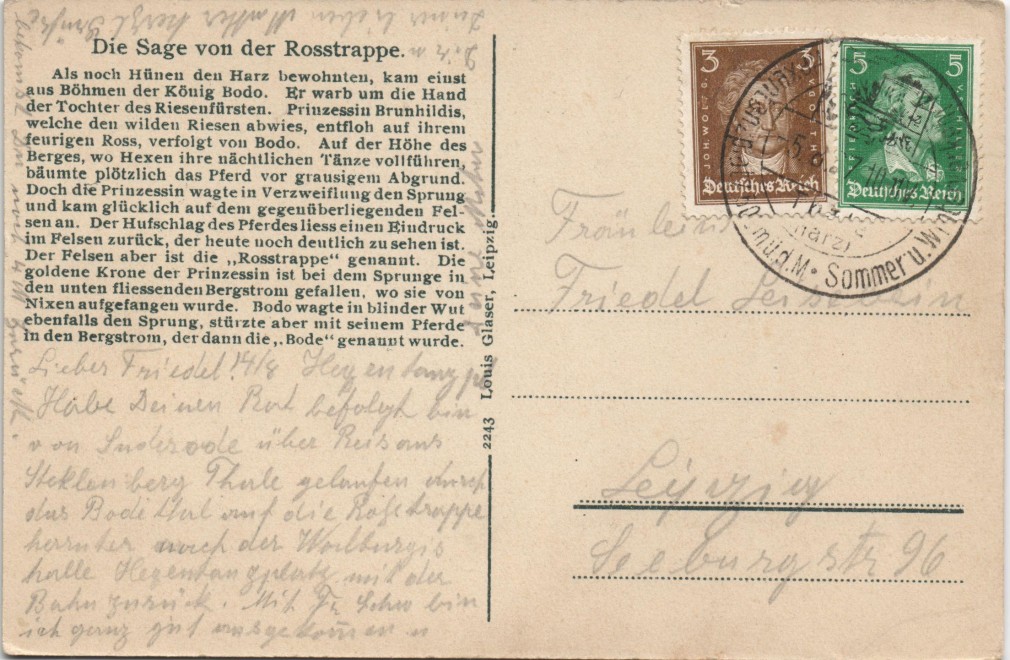 Die Sage von der Rosstrappe.
Als noch Hünen den Harz bewohnten, kam einst
aus Böhmen der König Bodo. Er warb um die Hand
der Tochter des Riesenfürsten. Prinzessin Brunhildis,
welche den wilden Riesen abwies, entfloh auf ihrem
feurigen Ross, verfolgt von Bodo. Auf der Höhe des
Berges, wo Hexen ihre nächtlichen Tänze vollführen,
bäumte plötzlich das Pferd vor grausigem Abgrund.
Doch die Prinzessin wagte in Verzweiflung den Sprung
und kam glücklich auf dem gegenüberliegenden Fel-
sen an. Der Hufschlag des Pferdes liess einen Eindruck
im Felsen zurück, der heute noch deutlich zu sehen ist.
Der Felsen aber ist die „Rosstrappe“ genannt. Die
goldene Krone der Prinzessin ist bei dem Sprunge in
den unten fliessenden Bergstrom gefallen, wo sie von
Nixen aufgefangen wurde. Bodo wagte in blinder Wut
ebenfalls den Sprung, stürzte aber mit seinem Pferde
in den Bergstrom, der dann die „Bode“ genannt wurde.
Lieber Friedel! 14/8 Hexentanzpl
Habe Deinen Rat befolgt bin
von Suderode über
Steklenberg Thale gelaufen durch
das Bodetal auf die Roßtrappe
herunter nach der Walburgis
halle Hexentanzplatz mit der
Bahn zurück. Mit bin
ich ganz gut ausgekommen u
2243 Louis Glaser, Leipzig.
3 3
JOH. WOLFG. V. GOETHE
Deutsches Reich
5 5
FRIEDRICH V. SCHILLER
Deutsches Reich
(Harz)
Sommer u. Wint
Fräulein
Friedel
Leipzig
Seeburgstr 96